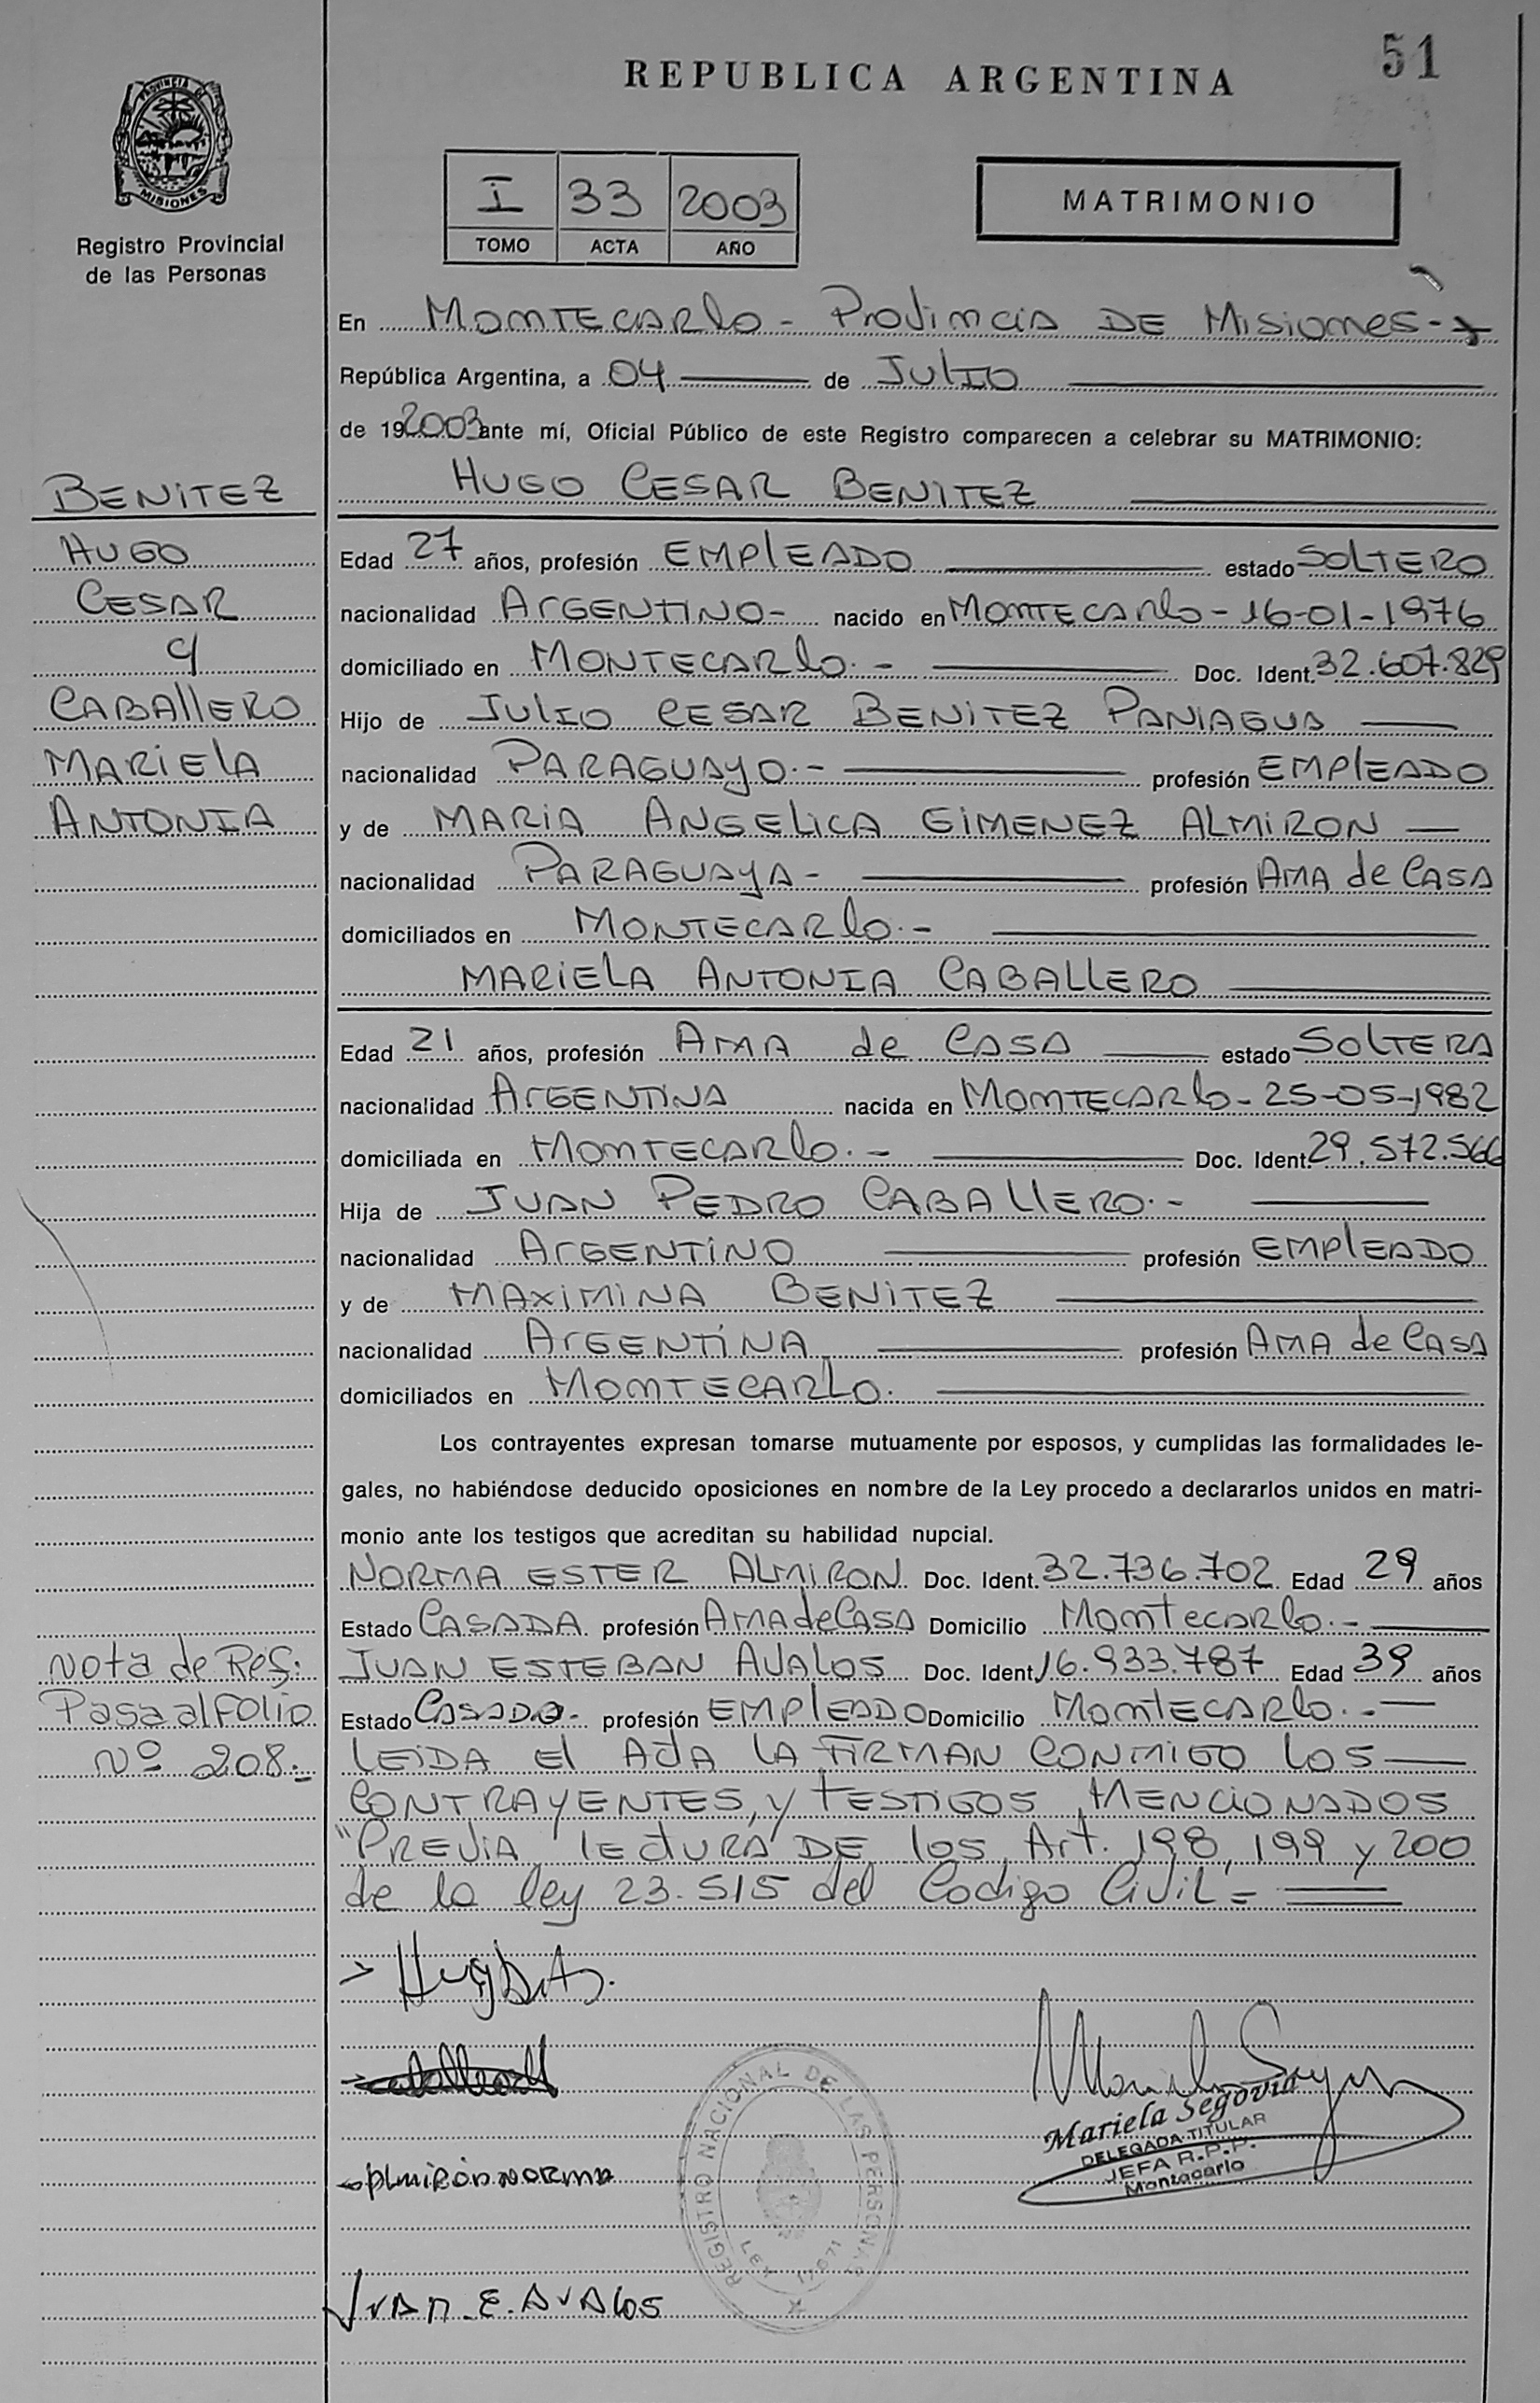 51
REPUBLICA ARGENTINA
PROVINCIA DE
MISIONES
Registro Provincial
de las Personas
I 33 2003
TOMO ACTA AÑO
MATRIMONIO
En MONTECARlo - Provincia DE Misiones-
República Argentina, a 04 de Julio
de 192003 ante mí, Oficial Público de este Registro comparecen a celebrar su MATRIMONIO:
HUGO CESAR BENITEZ
BENITEZ
HUGO
CESAR
y
CABAllERO
MARIELA
ANTONIA
Edad 27 años, profesión EMPlEADO estado SOLTERO
nacionalidad ArGENTINO- nacido en MONTECARlo - 16-01-1976
domiciliado en MONTECARlo.- Doc. Ident. 32.607.829
Hijo de JULIO CESAR BENITEZ PANIAGUA
nacionalidad PARAGUAYO.- profesión EMPlEADO
y de MARIA ANGELICA GIMENEZ ALMIRON
nacionalidad PARAGUAYA- profesión AMA de CASA
domiciliados en MONTECARlo.-
MARIELA ANTONIA CABALLERO
Edad 21 años, profesión AMA de CASA estado SOLTERA
nacionalidad ArGENTINA nacida en MONTECARlo- 25-05-1982
domiciliada en MONTECARlo.- Doc. Ident. 29.572.566
Hija de JUAN PEDRO CABAllERO.-
nacionalidad ArGENTINO profesión EMPlEADO
y de MAXIMINA BENITEZ
nacionalidad ArGENTINA profesión AMA de CASA
domiciliados en MONTECARLO.
Los contrayentes expresan tomarse mutuamente por esposos, y cumplidas las formalidades le-
gales, no habiéndose deducido oposiciones en nombre de la Ley procedo a declararlos unidos en matri-
monio ante los testigos que acreditan su habilidad nupcial.
NORMA ESTER ALMIRON Doc. Ident. 32.736.702 Edad 29 años
Estado CASADA profesión AMA de CASA Domicilio Montecarlo.-
JUAN ESTEBAN AVALOS Doc. Ident. 16.933.787 Edad 39 años
Estado CASADO- profesión EMPlEADO Domicilio MontECARlo.-
Nota de Ref:
Pasa al Folio
Nº 208.-
LEIDA El ActA LA FIRMAN CONMIGO los
CONTRAYENTES, y TESTIGOS MENCIONADOS
"PREVIA lectURA DE los Art. 198, 199 y 200
de la ley 23.515 del Codigo Civil=
Almirón Norma
JUAN. E. AVALOS
Mariela Segovia
DELEGADA TITULAR
JEFA R.P.P.
Montecarlo
REGISTRO NACIONAL DE LAS PERSONAS
LEY 17671